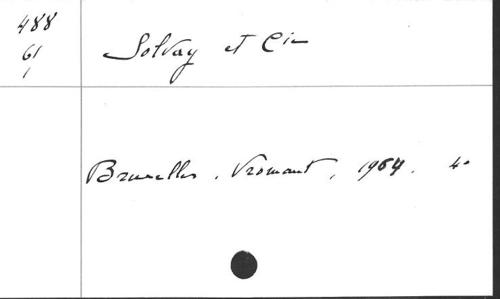 488
61
1
Solvay et Cie
Bruxelles, Vromant, 1964. 4°